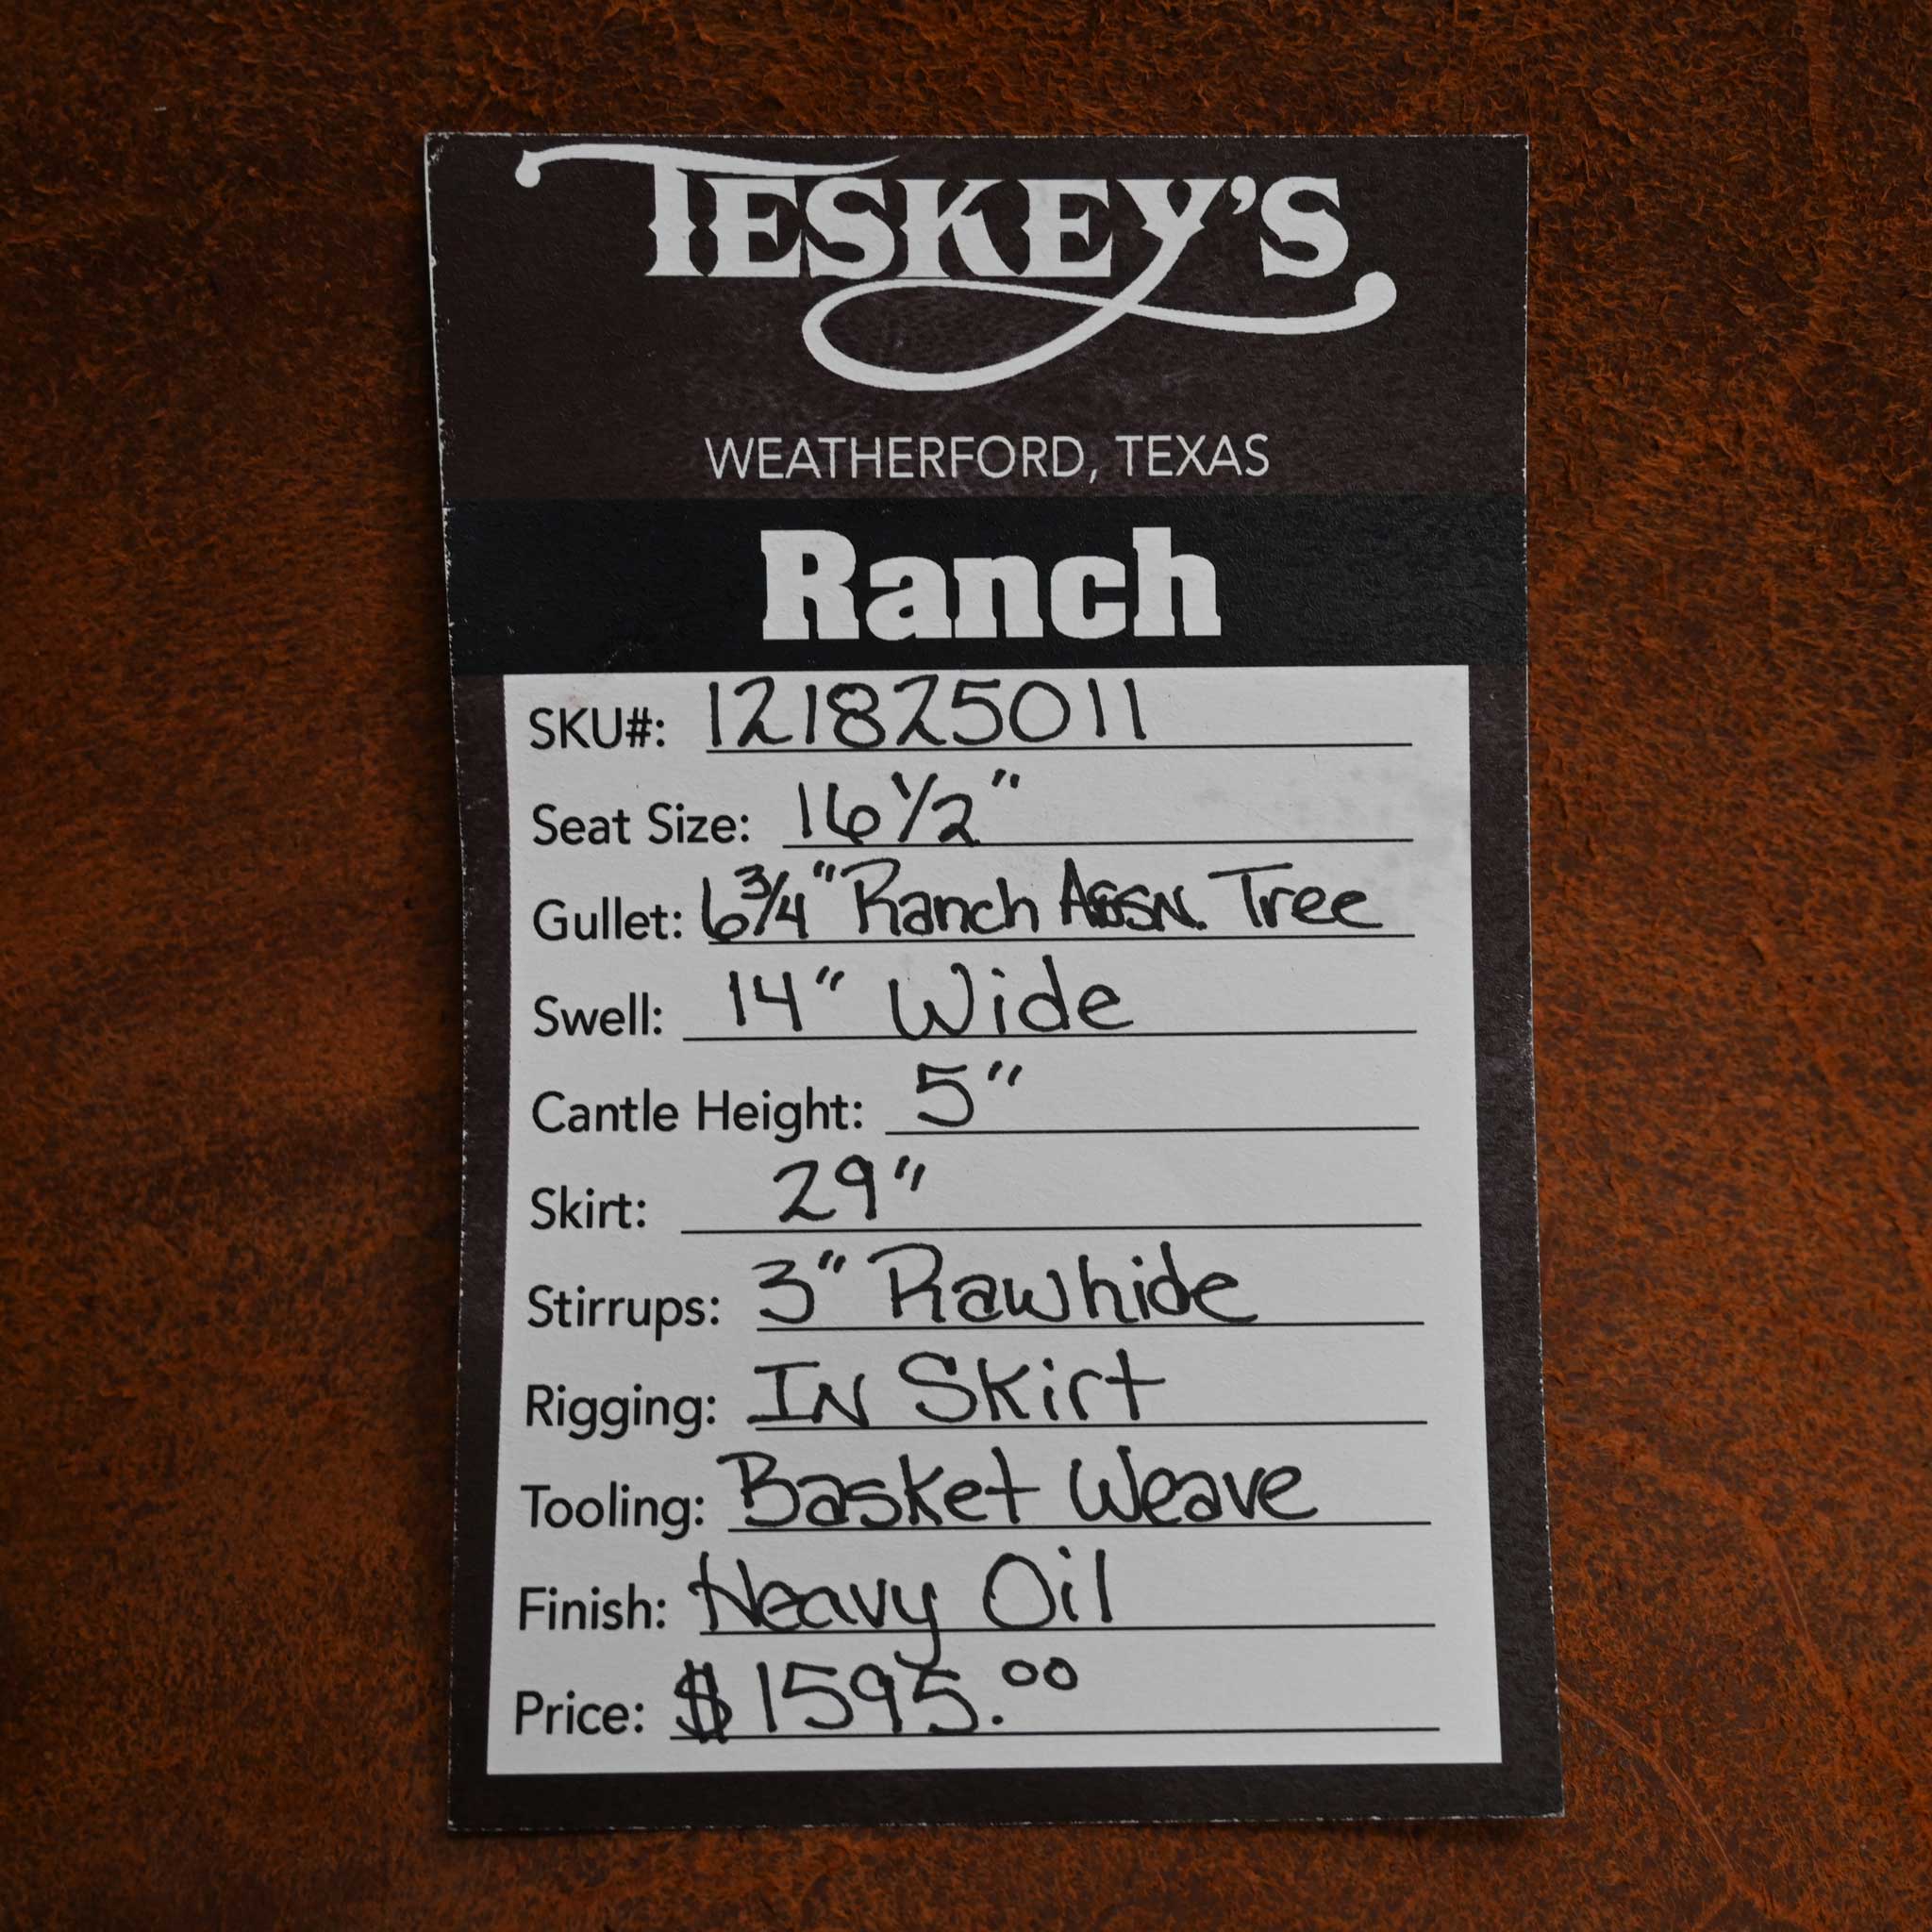 TESKEY'S
WEATHERFORD, TEXAS
Ranch
SKU#: 121825011
Seat Size: 16 1/2"
Gullet: 6 3/4" Ranch Assn. Tree
Swell: 14" Wide
Cantle Height: 5"
Skirt: 29"
Stirrups: 3" Rawhide
Rigging: IN Skirt
Tooling: Basket Weave
Finish: Heavy Oil
Price: $1595.00